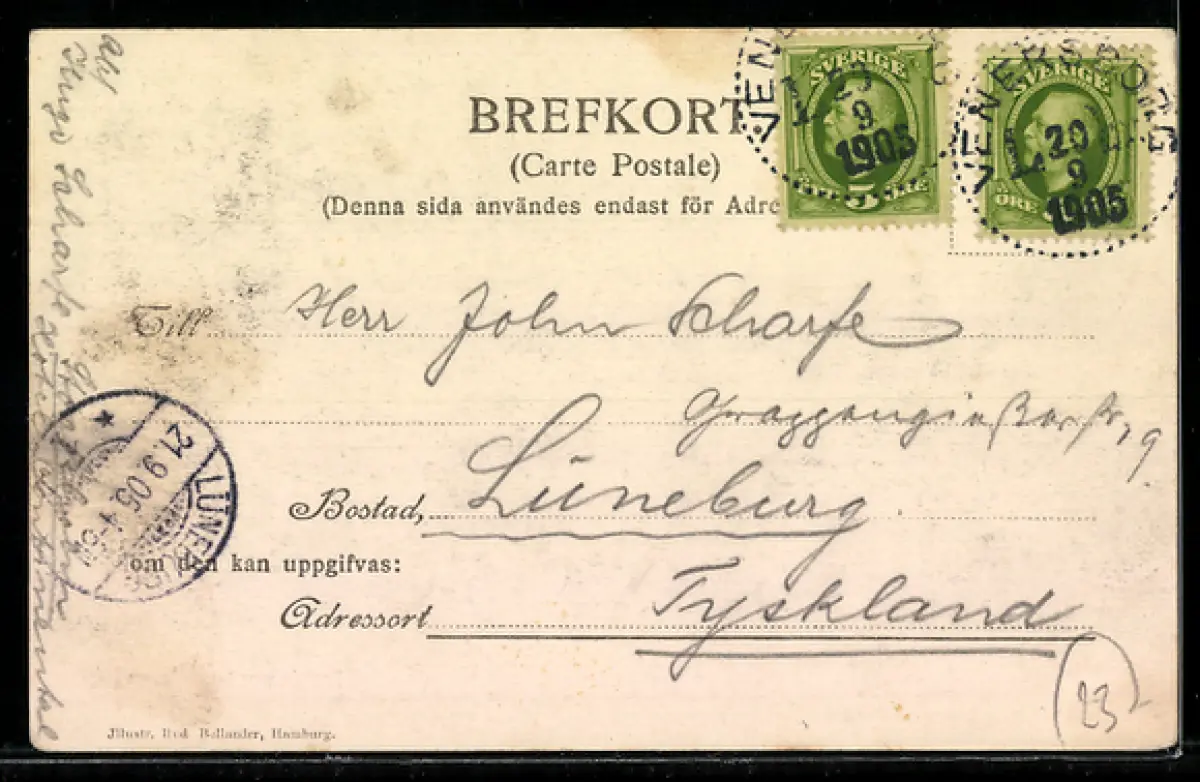 BREFKORT
(Carte Postale)
(Denna sida användes endast för Adre
SVERIGE
5 ÖRE
VEN
20
9
1905
SVERIGE
ÖRE
VENERSBORG
20
9
1905
Till Herr John Scharfe
9
Bostad, Lüneburg
om den kan uppgifvas:
Adressort Tyskland
23
Hugo Scharfe
Hotel Continental
LÜNEBURG
21.9.05
Jllustr. Rud. Ballander, Hamburg.